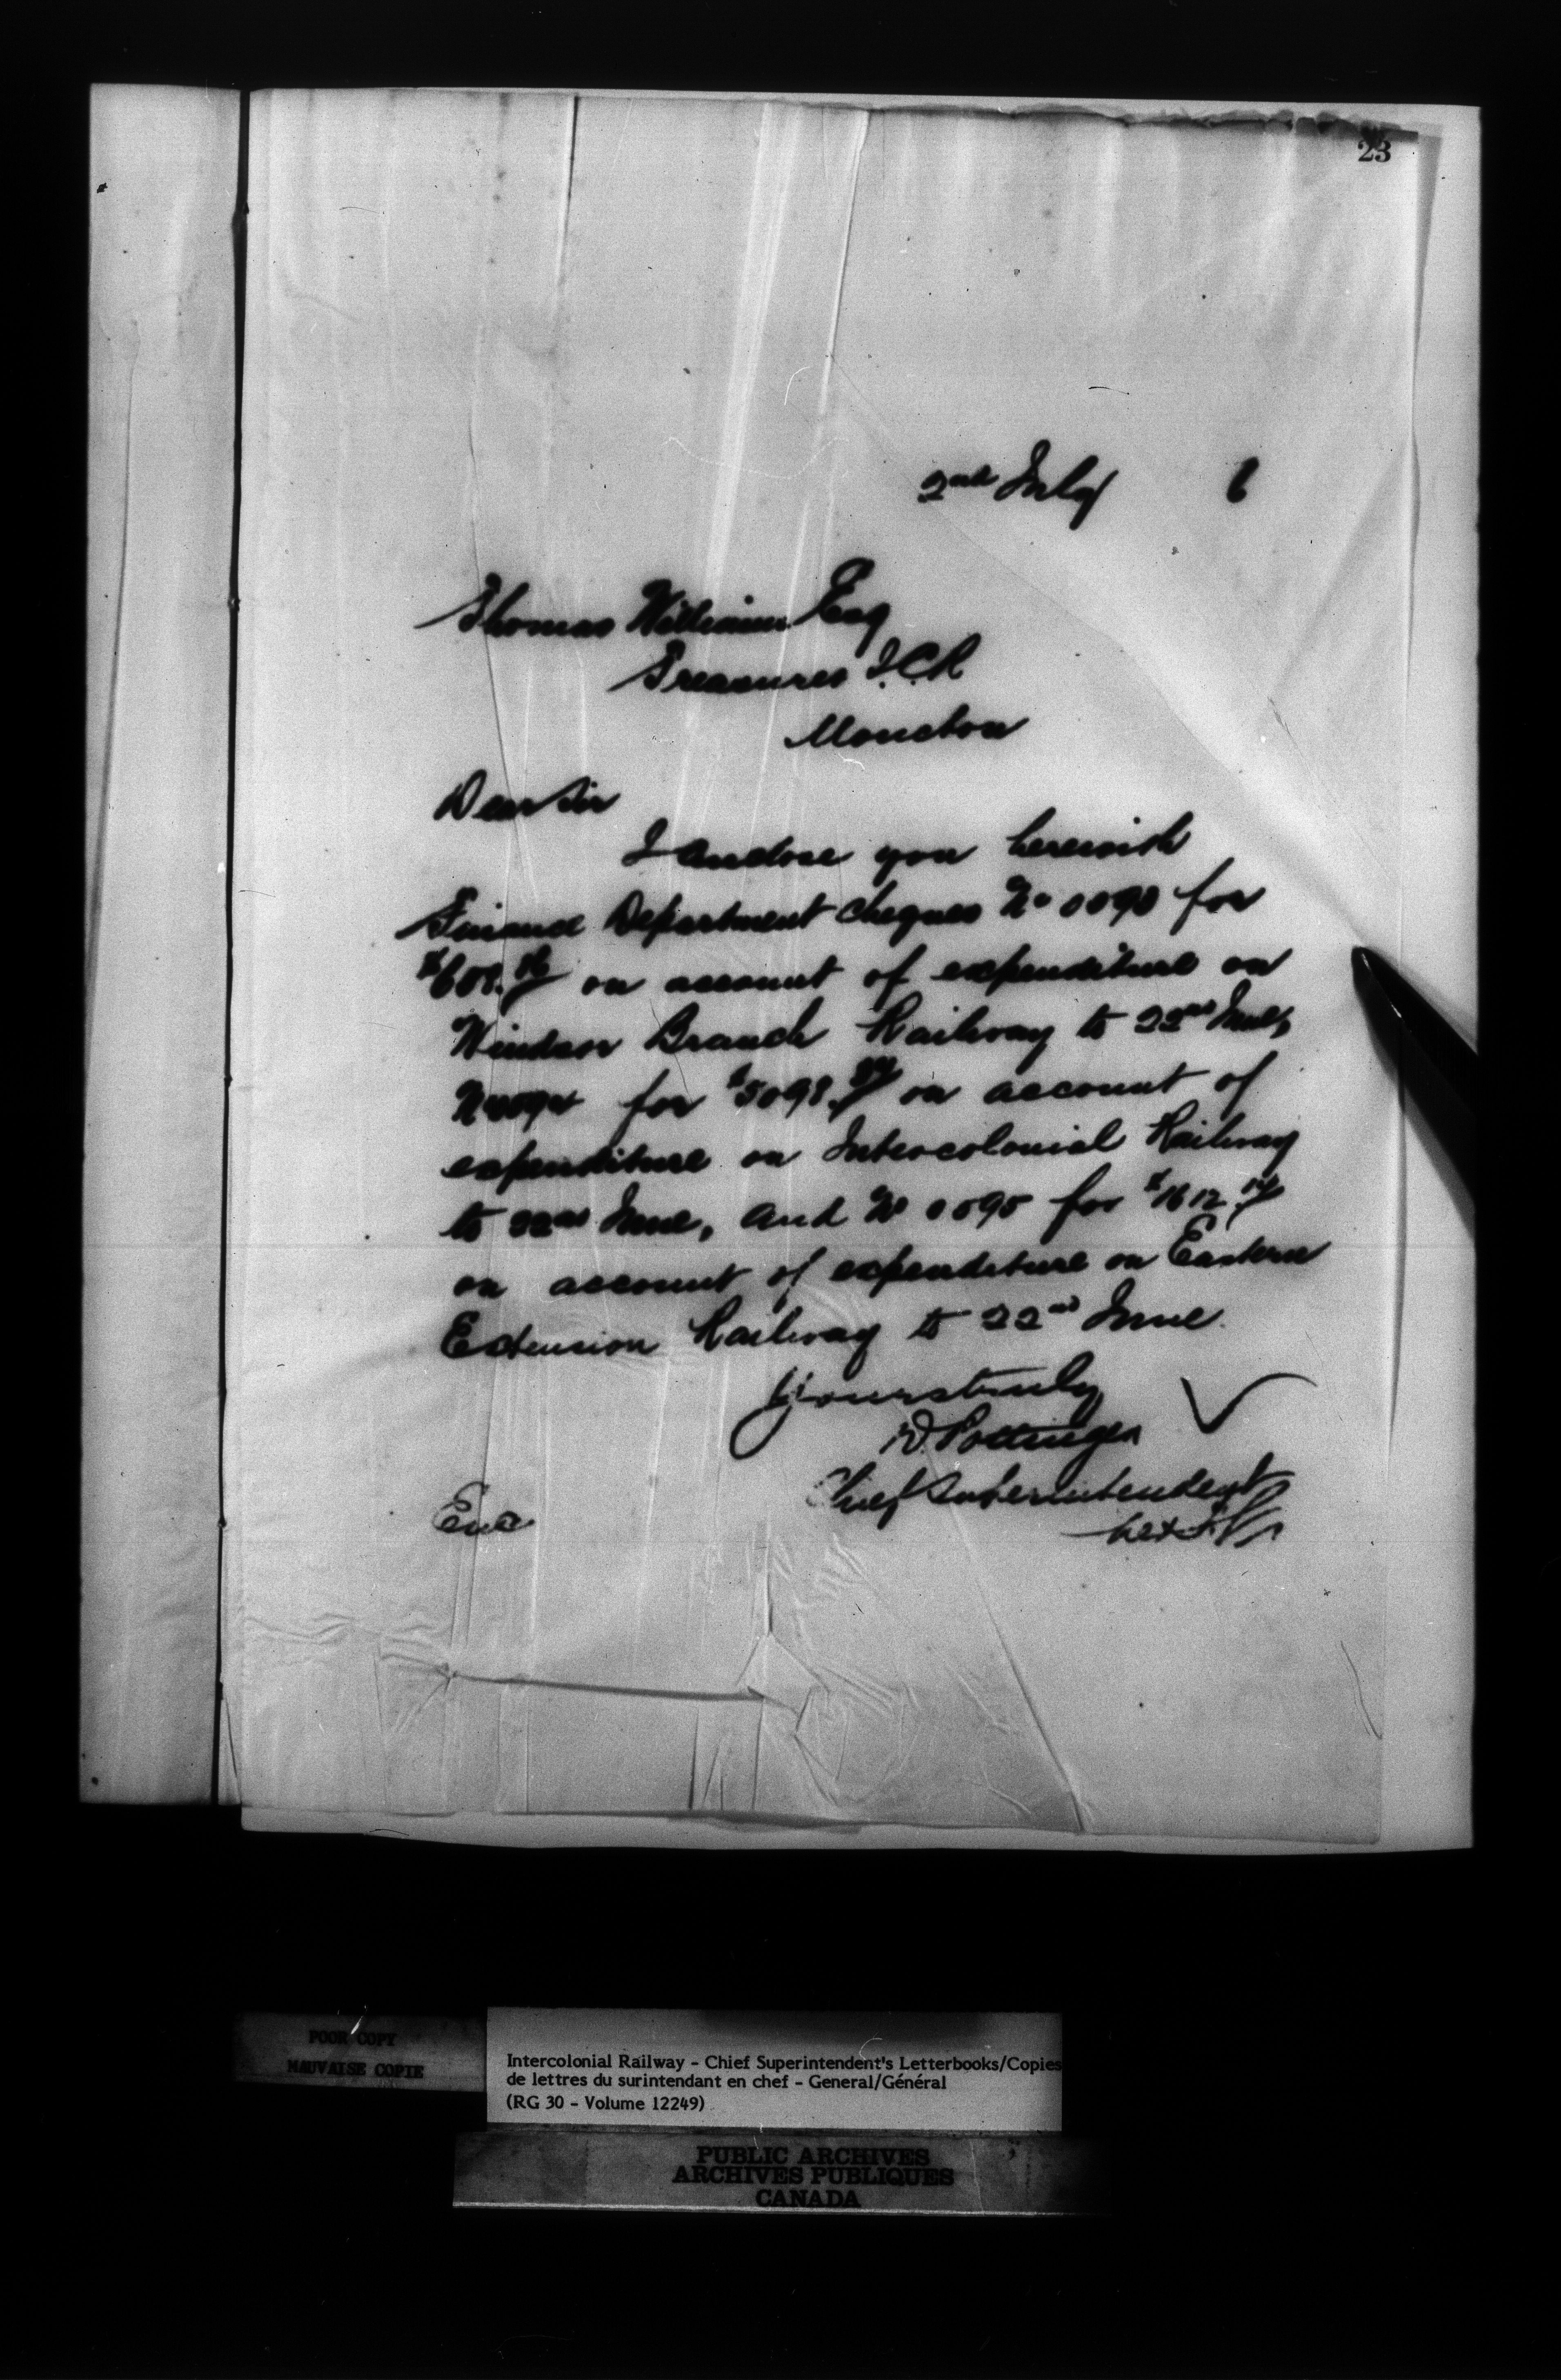 23
2nd July 6
Thomas Williams Esq
Treasurer I.C.R
Moncton
Dear Sir
I enclose you herewith
Finance Department cheques No for
on account of expenditure on
Windsor Branch Railway to 22nd June,
for on account of
expenditure on Intercolonial Railway
to 22nd June, and No for
on account of expenditure on Eastern
Extension Railway to 22nd June.
Yours truly
D. Pottinger
Chief Superintendent
Enc
POOR COPY
MAUVAISE COPIE
Intercolonial Railway - Chief Superintendent's Letterbooks/Copies
de lettres du surintendant en chef - General/Général
(RG 30 - Volume 12249)
PUBLIC ARCHIVES
ARCHIVES PUBLIQUES
CANADA